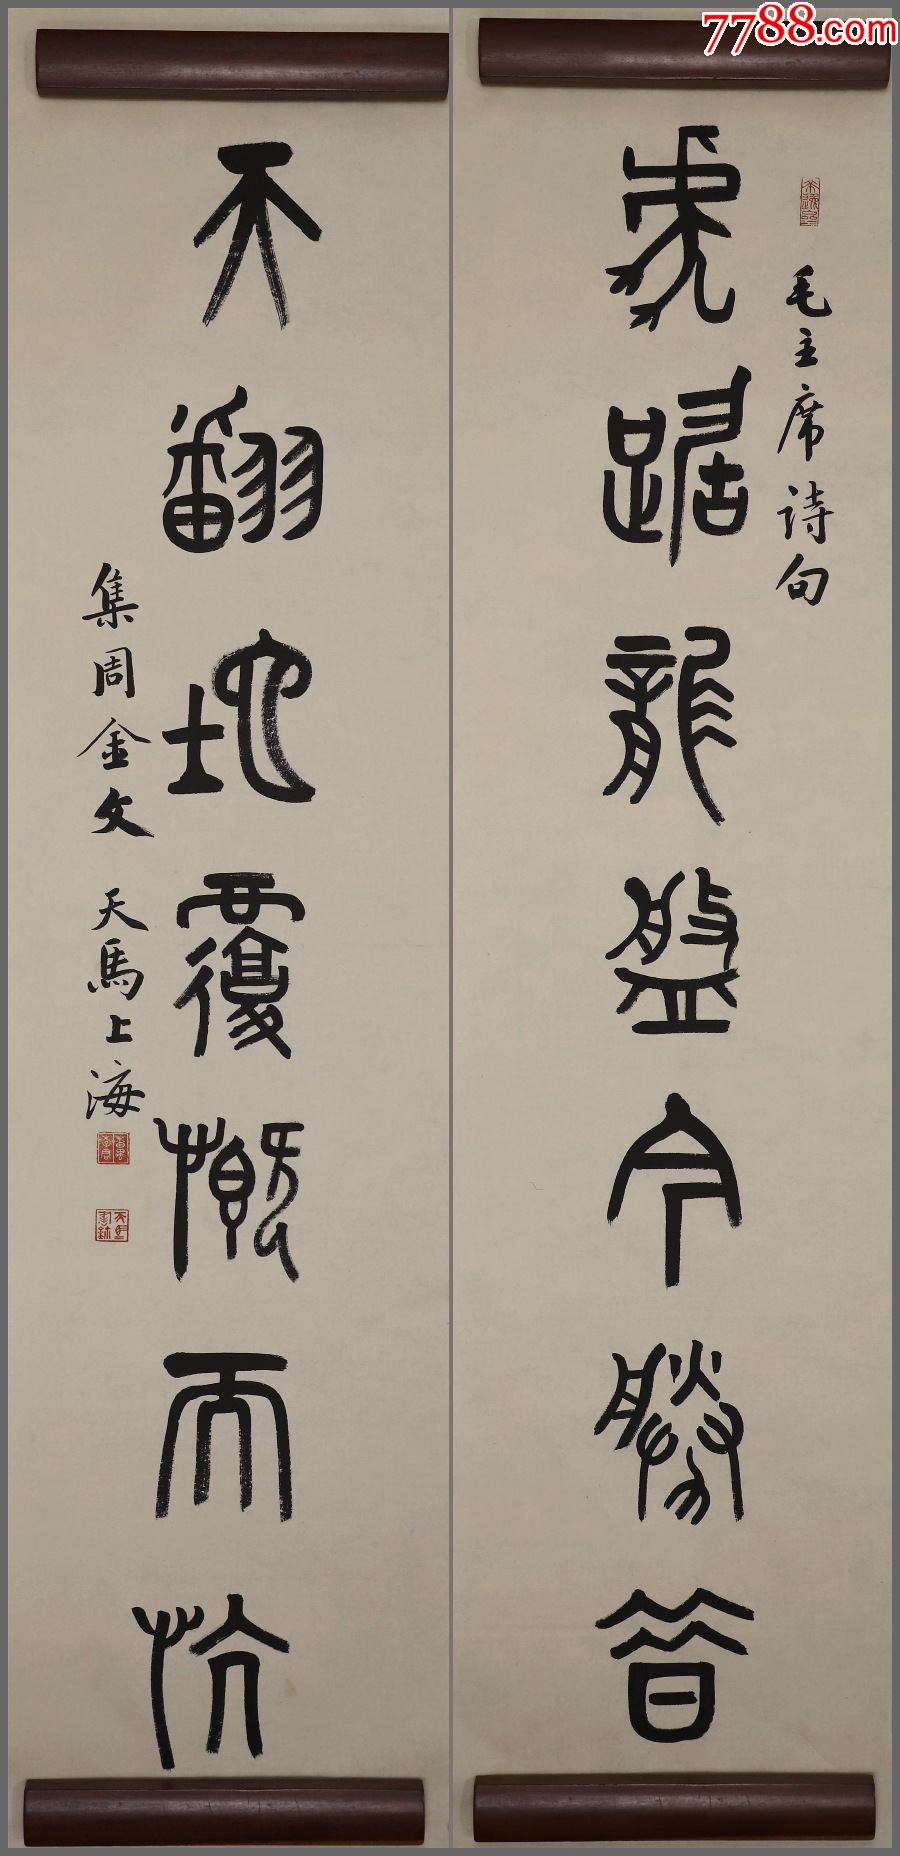 7788.com
毛主席诗句
虎踞龍盤今勝昔
天翻地覆慨而慷
集周金文 天馬上海